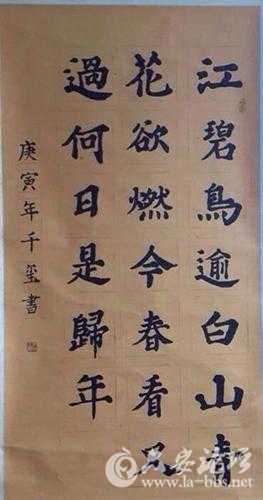 江碧鳥逾白山青
花欲燃今春看又
過何日是歸年
庚寅年千玺書
六安论坛
www.la-bbs.net